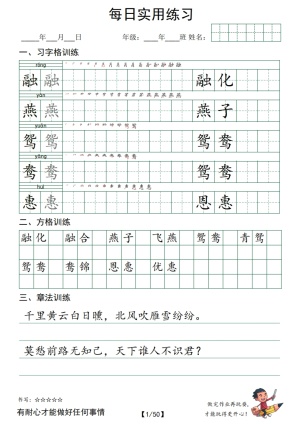 每日实用练习
____年 ___月___日 年级:___年___班 姓名:
一、习字格训练
róng
融 融 融 化
yàn
燕 燕 燕 子
yuān
鸳 鸳 鸳 鸯
yāng
鸯 鸯 鸳 鸯
huì
惠 惠 恩 惠
二、方格训练
融 化 融 合 燕 子 飞 燕 鸳 鸯 青 鸳
鸳 鸯 鸯 锦 恩 惠 优 惠
三、章法训练
千里黄云白日曛,北风吹雁雪纷纷。
莫愁前路无知己,天下谁人不识君?
书写:☆☆☆☆☆
有耐心才能做好任何事情
【1/50】
做完作业再玩耍,
才能玩得更开心!